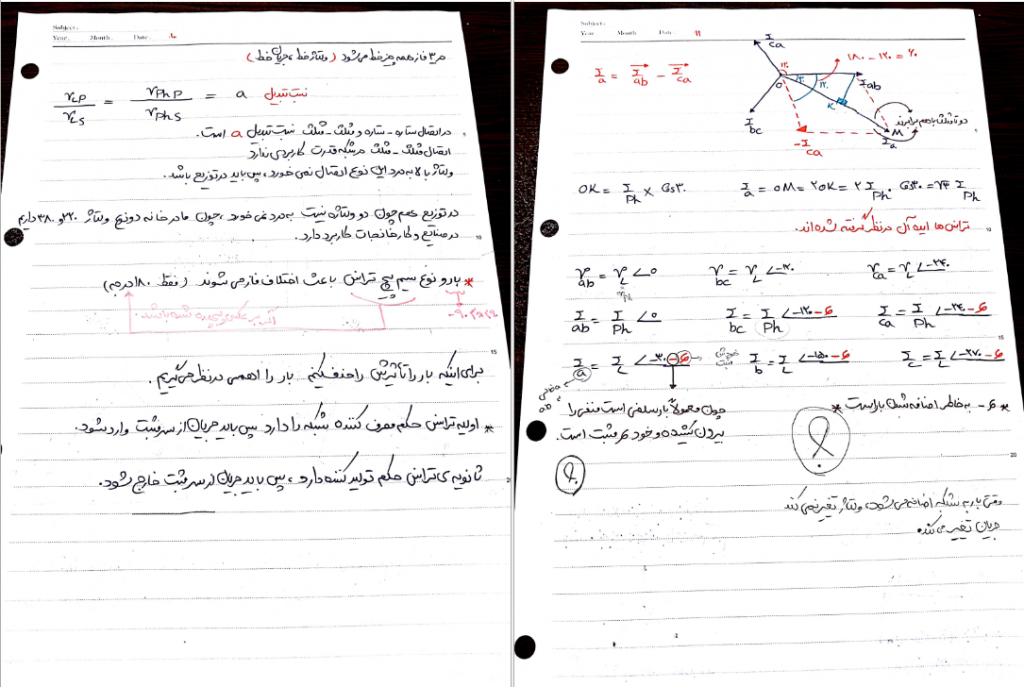 Subject:
Year. Month. Date.
در ۳ فاز همه چیز خط می‌شود (ولتاژ خط، جریان خط)
V_LP / V_LS = V_PhP / V_PhS = a نسبت تبدیل
در اتصال ستاره - ستاره و مثلث - مثلث نسبت تبدیل a است.
اتصال مثلث - مثلث در شبکه قدرت کاربردی ندارد
ولتاژ بالا به درد این نوع اتصال نمی خورد، پس باید در توزیع باشد.
در توزیع هم چون دو ولتاژه نیست به درد نمی خورد، چون ما در خانه دو نوع ولتاژ ۲۲۰ و ۳۸۰ داریم
در صنایع و کارخانجات کاربرد دارد.
* بار و نوع سیم پیچ ترانس باعث اختلاف فاز می شوند (فقط ۱۸۰ درجه)
اگر برعکس پیچیده شده باشد.
برای اینکه بار را تأثرش را حذف کنیم بار را اهمی در نظر می گیریم.
* اولیه ترانس حکم مصرف کننده شبکه را دارد پس باید جریان از سر مثبت وارد شود.
ثانویه ی ترانس حکم تولید کننده دارد، پس باید جریان از سر مثبت خارج شود.
Subject:
Year Month Date 11
I_ca
۱۸۰ - ۱۲۰ = ۶۰
I_a = I_ab - I_ca
O
I_ab
K
I_bc
M
I_a
-I_ca
دو تا مثلث با هم برابرند
OK = I_Ph × Cos۳۰
I_a = OM = ۲OK = ۲ I_Ph . Cos۳۰ = √۳ I_Ph
ترانس ها ایده آل در نظر گرفته شده اند.
V_ab = V_L ∠۰ V_bc = V_L ∠-۱۲۰ V_ca = V_L ∠-۲۴۰
I_ab = I_Ph ∠۰ I_bc = I_Ph ∠-۱۲۰-φ I_ca = I_Ph ∠-۲۴۰-φ
I_a = I_L ∠-۳۰-φ خودش مثبت I_b = I_L ∠-۱۵۰-φ I_c = I_L ∠-۲۷۰-φ
* φ- به خاطر اضافه شدن بار است
چون معمولاً بار سلفی است منفی را
بیرون کشیده و خود φ مثبت است.
؟
؟
وقتی بار به شبکه اضافه می شود، ولتاژ تغییر نمی کند
جریان تغییر می کند.